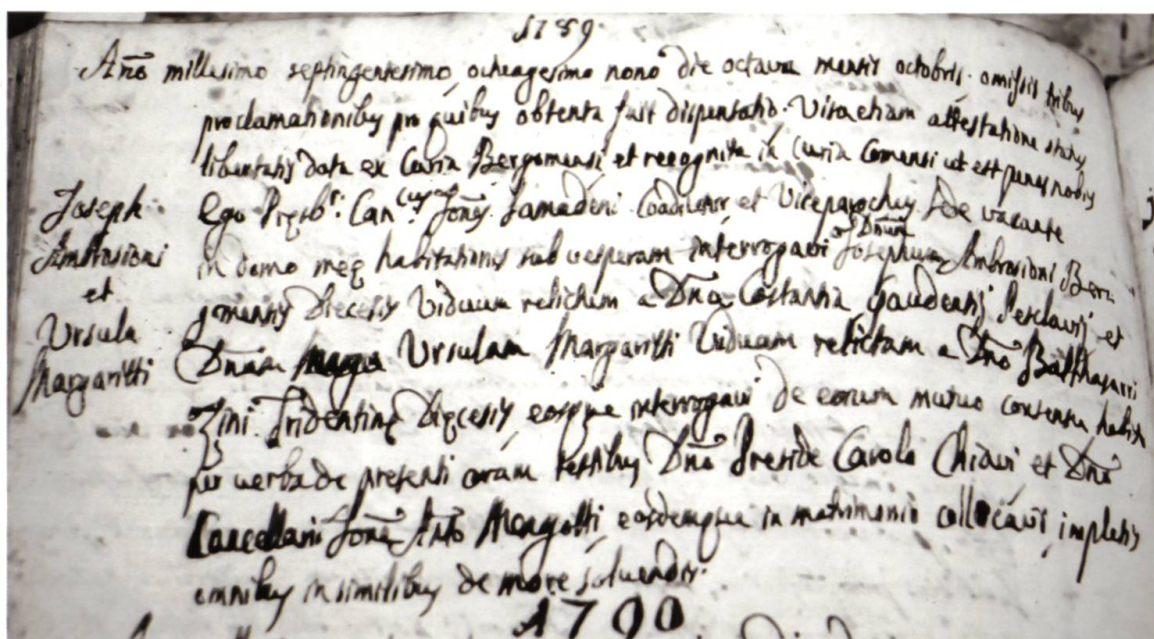 1789.
Año millesimo septingentesimo octuagesimo nono die octava mensis octobris. omissis tribus
proclamationibus pro quibus obtenta fuit dispensatio. Visa etiam attestatione status
libertatis data ex Curia Bergomensi et recognita in Curia Comensi ut est penes nobis
Joseph
Ambrosioni
et
Ursula
Margaritti
Ego Presb.r Can.cus Joñes Samadeni Coadiutor et Viceparochus sede vacante
in domo meę habitationis sub vesperam interrogavi Dnum Josephum Ambrosioni Berg
gomensis Diecesis Viduum relictum a Dña Costantia Gaudentij Pesclavij et
Dñam Ursulam Margaritti Viduam relictam a Dño Balthasarri
Zini Tridentinę Dięcesis, eosque interrogavi de eorum mutuo consensu habito
per verba de presenti coram testibus Dño Preside Carolo Chiavi et Dño
Cancellario Joñe Anto Mengotti, eosdemque in matrimonio collocavi, impletis
omnibus in similibus de more solvendis.
1790